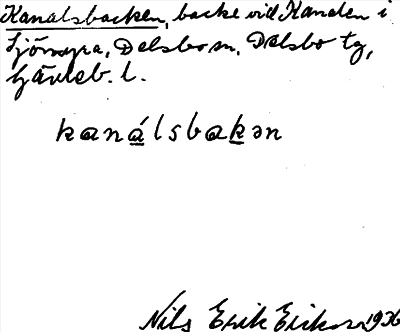 Kanalsbacken, backe vid Kanalen i
Delsbo sn, Delsbo tg,
Gävleb. l.
kanálsbakən
Nils Erik Erikson 1936